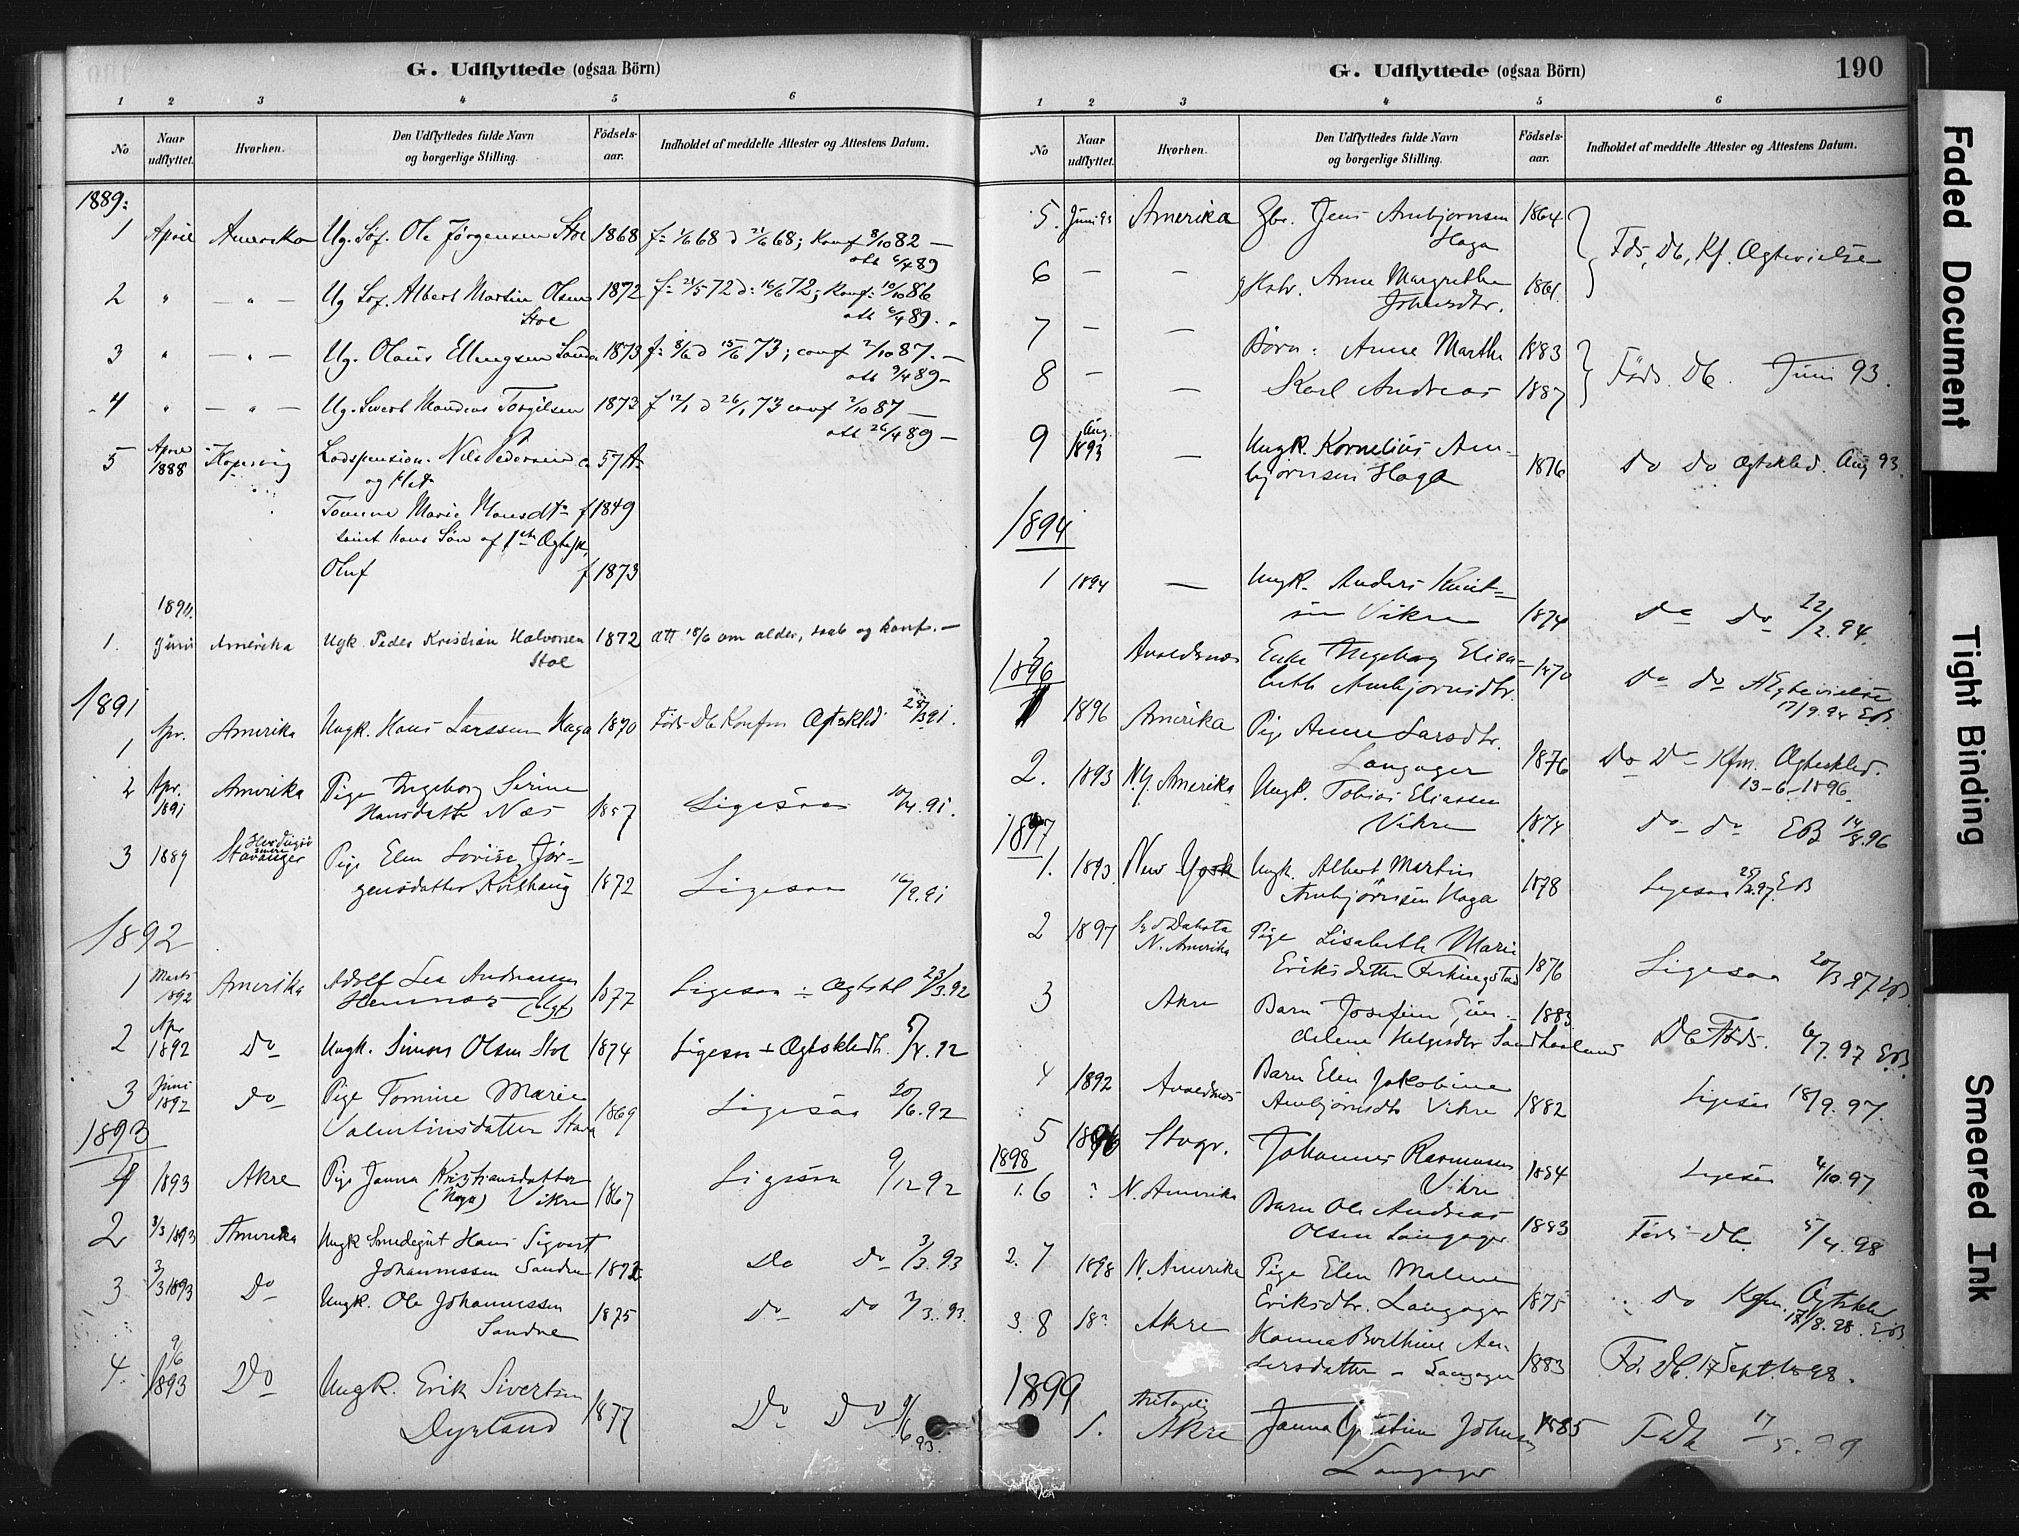 G. Udflyttede (ogsaa Börn)
1 2 3 4 5 6
No Naar udflyttet. Hvorhen. Den Udflyttedes fulde Navn og borgerlige Stilling. Födsels-aar. Indholdet af meddelte Attester og Attestens Datum.
1889:
1 April Amerika Ug. Söf. Ole Jörgensen Stol 1868 f. 1/6 68 d 21/6 68; Konf 8/10 82 —
att 6/4 89
2 " — " — Ug Sof. Albert Martin Olsen 1872 f. 21/5 72 d: 16/6 72; Konf: 10/10 86
Stol att 6/4 89.
3 " — " — Ug. Olaus Ellingsen Sandn 1873 f. 8/6 d 15/6 73; conf 2/10 87. —
att 9/4 89 —
4 " — " — Ug. Sivert Torgilsen 1873 f 12/1 d 26/1 73 conf 2/10 87 —
att 26/4 89 —
5 April 1888 Kopervig Lodspension. Nils Pedersen 57 A
og Hst
Tomine Marie Hansdtr f 1849
samt hans Søn af 1st Ægtesk.
Oluf f 1873
189
1. Juni Amerika Ugk Peder Kristian Halvorsen 1872 att 18/6 om alder, daab og konf. —
Stol
1891
1 Apr. Amerika Ungk. Hans Larssen Haga 1870 Föds Db Konfm Ægtskled 28/3 91.
2 Apr. 1891 Amerika Pige Ingeborg Serine
Hansdatter Næs 1857 Ligesaa 10/4. 91.
3 1889 Stavanger Pige Elen Lovise Jör-
gensdatter Kvilhaug 1872 Ligesaa 16/9. 91
1892
1 Marts 1892 Amerika Adolf Lea Andreassen
Hemnes (Ugt) 1877 Ligesaa ÷ Ægtskl 23/3. 92
2 Apr 1892 Do Ungk. Simon Olsen Stol 1874 Ligesaa + Ægtskledh. 5/4. 92
3 Juni 1892 Do Pige Tomine Marie
Valentinsdatter Stava 1869 Ligesaa 20/6. 92
1893
1 1893 Akre Pige Janna Kristiansdatter
(Haga) Vikre 1867 Ligesaa 9/12 92
2 3/3 1893 Amerika Ungk Smedegut Hans Sigvart
Johannessen Sandne 1872 Do Do 3/3. 93
3 3/3 1893 Do Ungk. Ole Johannessen
Sandne 1875 Do Do 3/3. 93.
4. 9/6 1893 Do Ungk. Erik Sivertsen
Dyrland 1877 Do Do 9/6 93.
G. Udflyttede (ogsaa Börn) 190
1 2 3 4 5 6
No Naar udflyttet. Hvorhen. Den Udflyttedes fulde Navn og borgerlige Stilling. Födsels-aar. Indholdet af meddelte Attester og Attestens Datum.
5. Juni 93 Amerika Gbr. Jens Ambjörnsen 1864
Haga Föds, Db, Kf. Ægtevielse
6 — — Hstr. Anne Margrethe 1861.
Johnsdtr.
7 — — Börn: Anne Marthe 1883
8 — — Karl Andreas 1887 Föds. Db. Juni 93.
9 Aug. 1893 — Ungk. Kornelius Am-
bjørnsen Haga 1876 do do Ægtskled. Aug 93.
1894
1 1894 — Ungk. Anders Knut-
sen Vikre 1874 do Do 22/2. 94.
2 Avaldsnes Enke Ingeborg Elisa-
beth Ambjørnsdtr. 1870 do do Ægtevielse
1896 17/9. 94 EB.
1 1896 Amerika Pige Anne Larsdtr.
Langager 1876 Do Do Kfm. Ægteskled.
13-6-1896.
2. 1893 N. Y. Amerika Ungk. Tobias Eliassen
Vikre 1874 do do EB 14/8. 96
1897
1. 1893. New York Ungk. Albert Martin
Ambjörnsen Haga 1878 Ligesaa 25/2. 97. EB
2 1897 Syd Dakota
N. Amerika Pige Lisabeth Marie
Eriksdatter Ferkingstad 1876 Ligesaa 20/3 97 EB.
3 Akre Barn Josefine Gun-
delene Helgesdtr Sandhaaland 1883 Db Föds. 6/7. 97 EB.
4 1892 Avaldsnes Barn Elen Jakobine
Ambjörnsdtr Vikre 1882 Ligesaa 18/9. 97.
5 1896 Stvgr. Johannes Rasmussen
Vikre 1884 Ligesaa 4/10. 97
1898
1. 6 ? N. Amerika Barn Ole Andreas
Olsen Langager 1883 Föds Db. 5/4. 98
2. 7 1898 N. Amerika Pige Elen Malene
Eriksdtr. Langager 1875 Do Kfm. Ægtskled
17/8. 98. EB
3. 8 18? Akre Hanna Berthine An-
dersdatter Langager 1883 Fds. Db. 17 Sept. 1898.
1899
1. Akre Janna Johnsen 1885 17/5. 99
Langager
Faded Document
Tight Binding
Smeared Ink